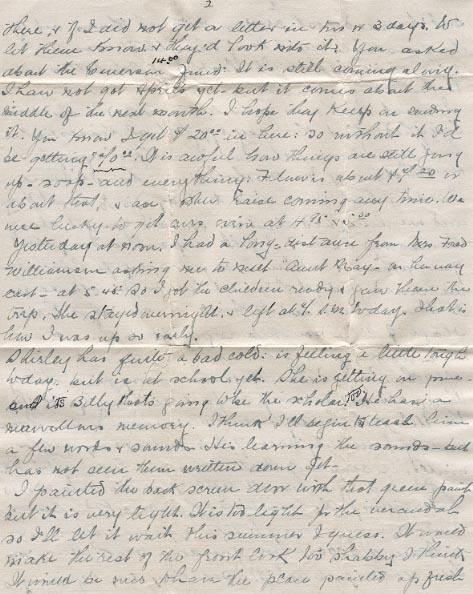 2
there, & if I did not get a letter in two or 3 days. to
let them know & they'd look into it. You asked
about the Pension 14.00 fund: It is still coming along.
I have not got April's yet but it comes about the
middle of the next month. I hope they keep on sending
it. You know I get $20.00 in here: so without it I'd
be getting
up - soap - and everything: Flour is about
about that, & a raise coming any time. We
were lucky to get ours, even at 4.75 & 5.00
Yesterday at noon, I had a long-distance from Mrs. Fred
Williamson asking me to meet Aunt May - on her way
east - at 5.45 so I got the children ready &
She stayed overnight, & left at today. That is
how I was up so early.
Shirley has quite a bad cold: is feeling a little tough
today. but is at school yet. She is getting on fine
and it's Billy that's going to be the scholar too. He has a
marvellous memory. I think I'll begin to teach him
a few words & sounds. He's learning the sounds - but
has not seen them written down yet -
I painted the back screen door with that green paint
but it is very light. It is too light for the verandah
so I'll let it wait this summer I guess. It would
make the rest of the front look too shabby I think
It would be nice to have the place painted up fresh